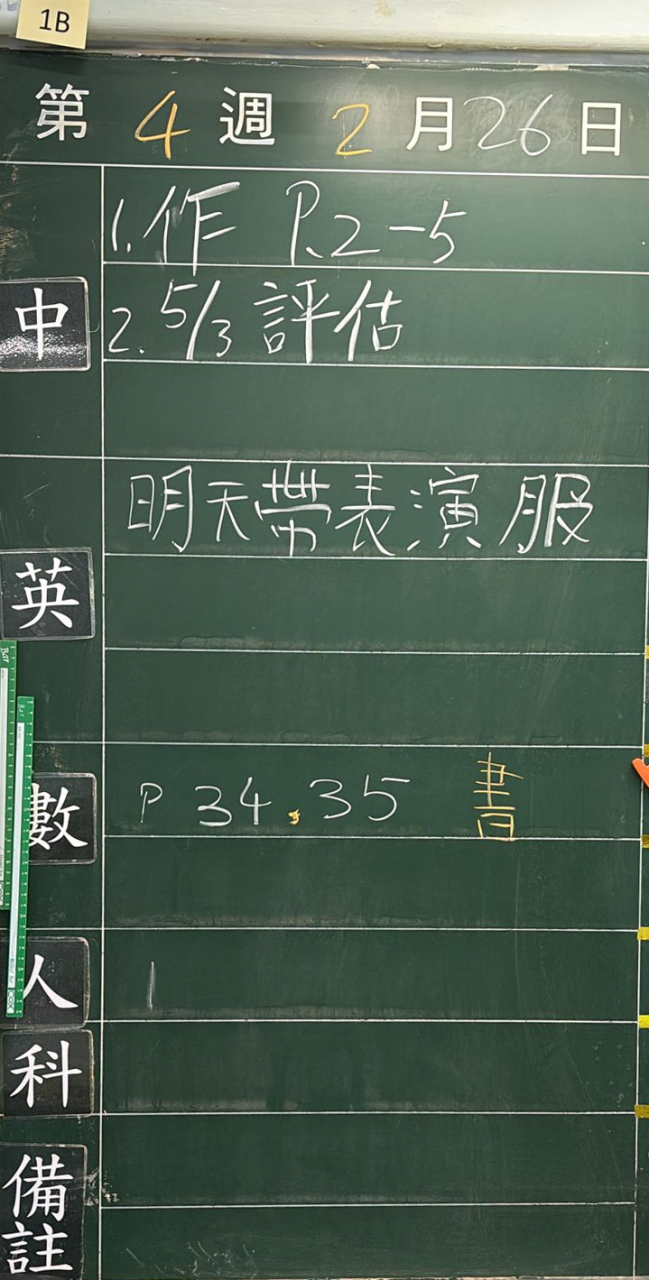 1B
第 4 週 2 月 26 日
1. 作 P.2-5
中
2. 5/3 評估
明天帶表演服
英
數 P 34.35 書
人
科
備註